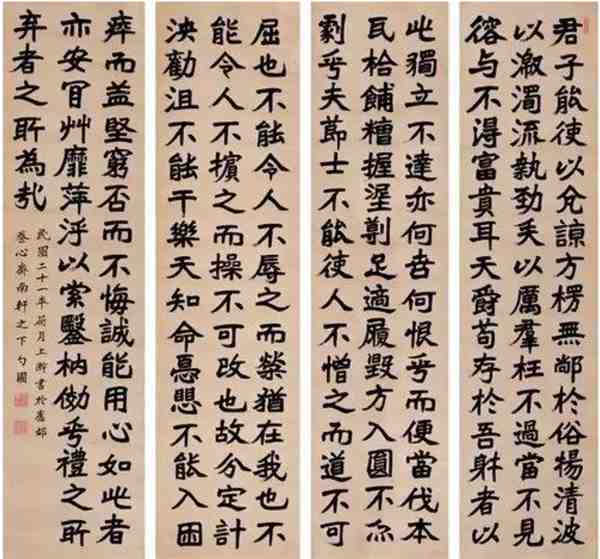 君子能使以兊諒方楞無鄰於俗楊清波
以激濁流執勁矢以厲羣枉不過當不見
容与不得富貴耳天爵苟存於吾躰者以
此獨立不達亦何苦何恨乎而便當伐本
瓦枱餔糟握埿剸足適履毀方入圓不尔
劇乎夫節士不能使人不憎之而道不可
屈也不能令人不辱之而榮猶在我也不
能令人不擯之而操不可改也故分定計
決勸沮不能干樂天知命憂懼不能入困
瘁而益堅窮否而不悔誠能用心如此者
亦安肎艸靡萍浮以索鑿枘効乎禮之所
弃者之所為㢤
民國二十一年荷月上澣書於舊都
養心齋南軒之下勺園